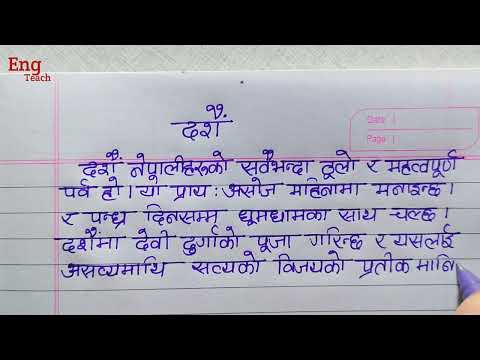 Eng
Teach
दशैं
Date :
Page :
दशैं नेपालीहरुको सबैभन्दा ठूलो र महत्वपूर्ण
पर्व हो । यो प्राय : असोज महिनामा मनाइन्छ ।
र पन्ध्र दिनसम्म धूमधामका साथ चल्छ ।
दशैंमा देवी दुर्गाको पूजा गरिन्छ र यसलाई
असत्यमाथि सत्यको विजयको प्रतीक मानि